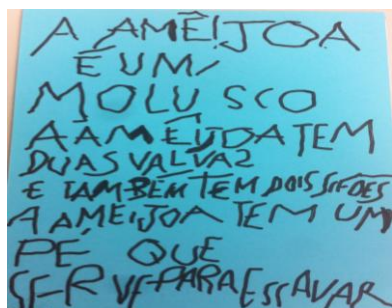 A AMÊIJOA
É UM
MOLUSCO
A AMÊIJOA TEM
DUAS VALVAS
E TAMBÉM TEM DOIS SIFÕES
A AMEIJOA TEM UM
PÉ QUE
SERVE PARA ESCAVAR